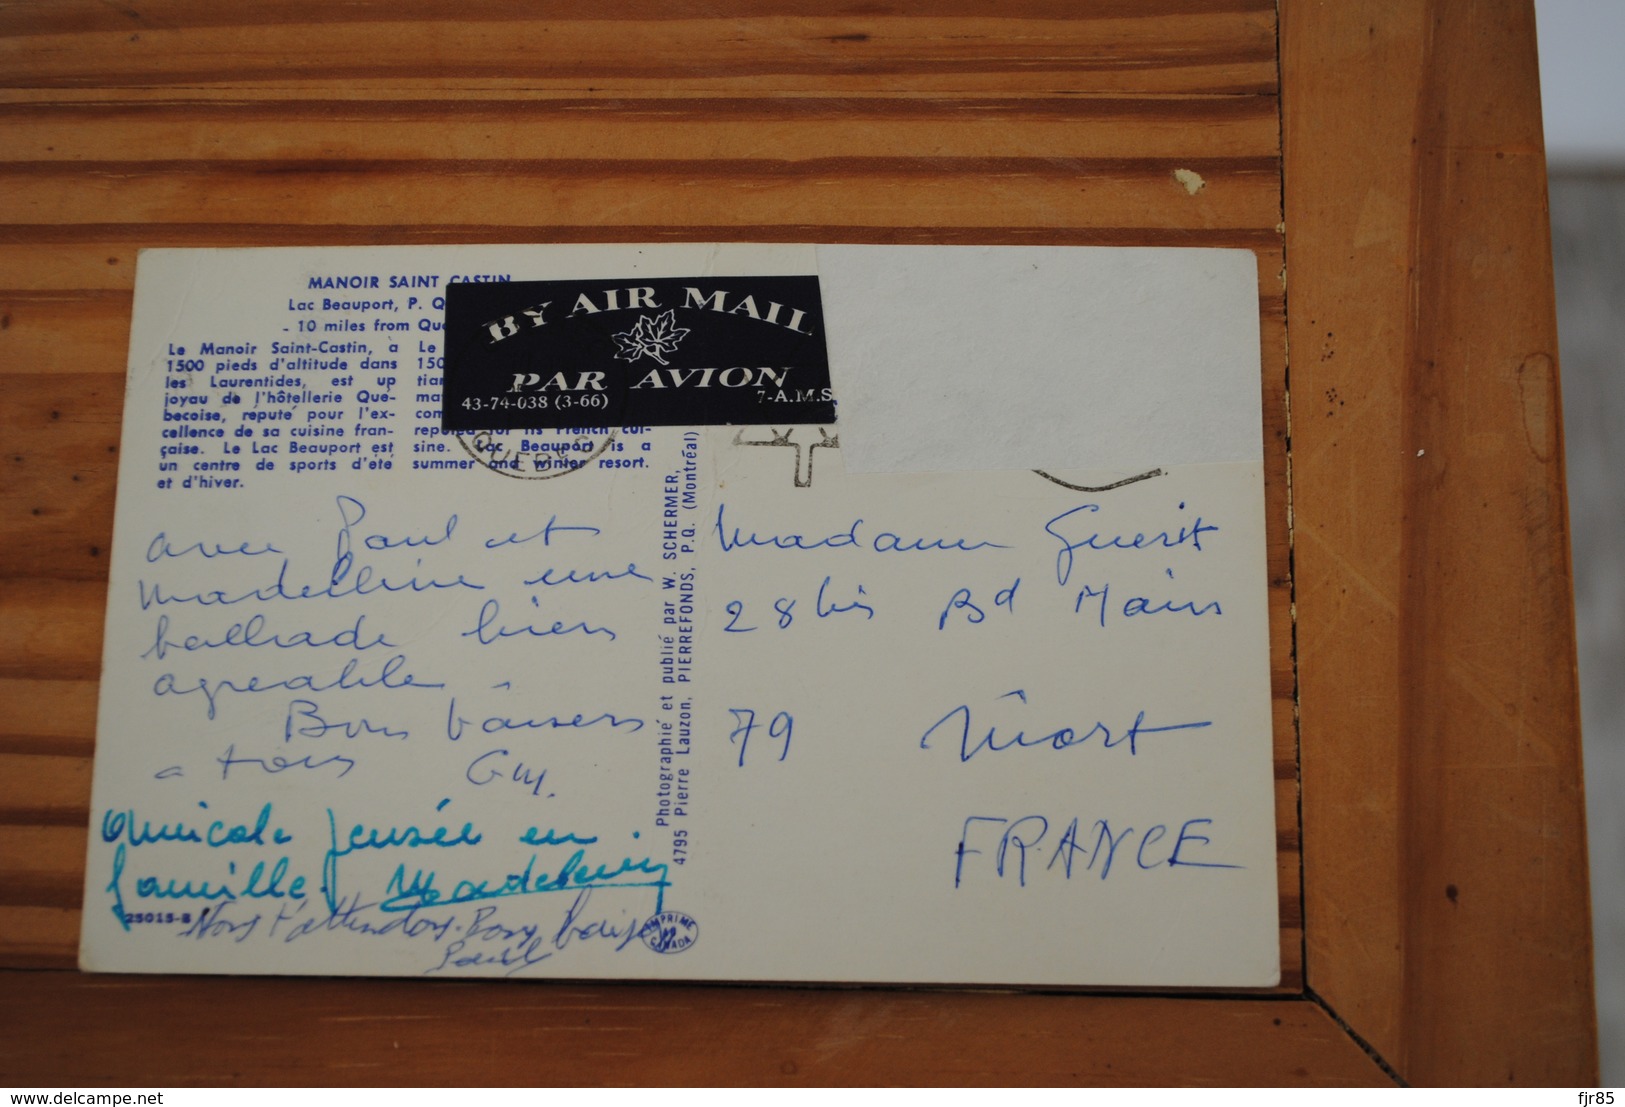 MANOIR SAINT CASTIN
Lac Beauport, P. Q
- 10 miles from Que
Le Manoir Saint-Castin, a
1500 pieds d'altitude dans
les Laurentides, est up
joyau de l'hôtellerie Que-
becoise, reputé pour l'ex-
cellence de sa cuisine fran-
çaise. Le Lac Beauport est
un centre de sports d'eté
et d'hiver.
Le
150
tian
mat
com
reputed for its French cui-
sine. Lac Beauport is a
summer and winter resort.
BY AIR MAIL
PAR AVION
43-74-038 (3-66)
7-A.M.S.
QUEBEC
avec Paul et
Madeleine une
ballade bien
agreable.
Bons baisers
a tous Guy.
Amicale pensée en
famille. Madeleine
25015-B
Nous t'attendons. Bons baisers
Paul
Photographié et publié par W. SCHERMER,
4795 Pierre Lauzon, PIERREFONDS, P.Q. (Montréal)
IMPRIME AU CANADA
Madame Guerit
28 bis Bd Main
79 Niort
FRANCE
delcampe.net
fjr85